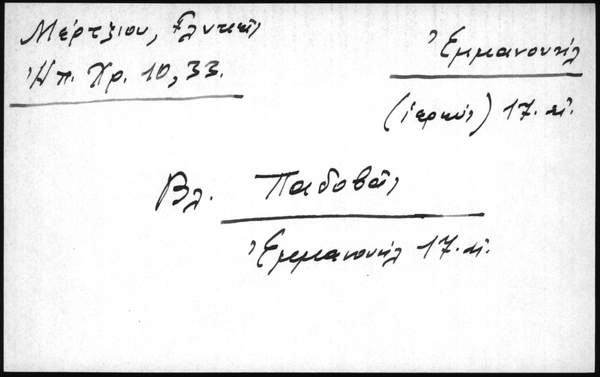 Μέρτζιου, Γλυκᾶς
Ἠπ. Χρ. 10, 33.
Ἐμμανουήλ
(ἱερεύς) 17. αἰ.
Βλ. Παδοβᾶς
Ἐμμανουήλ 17. αἰ.